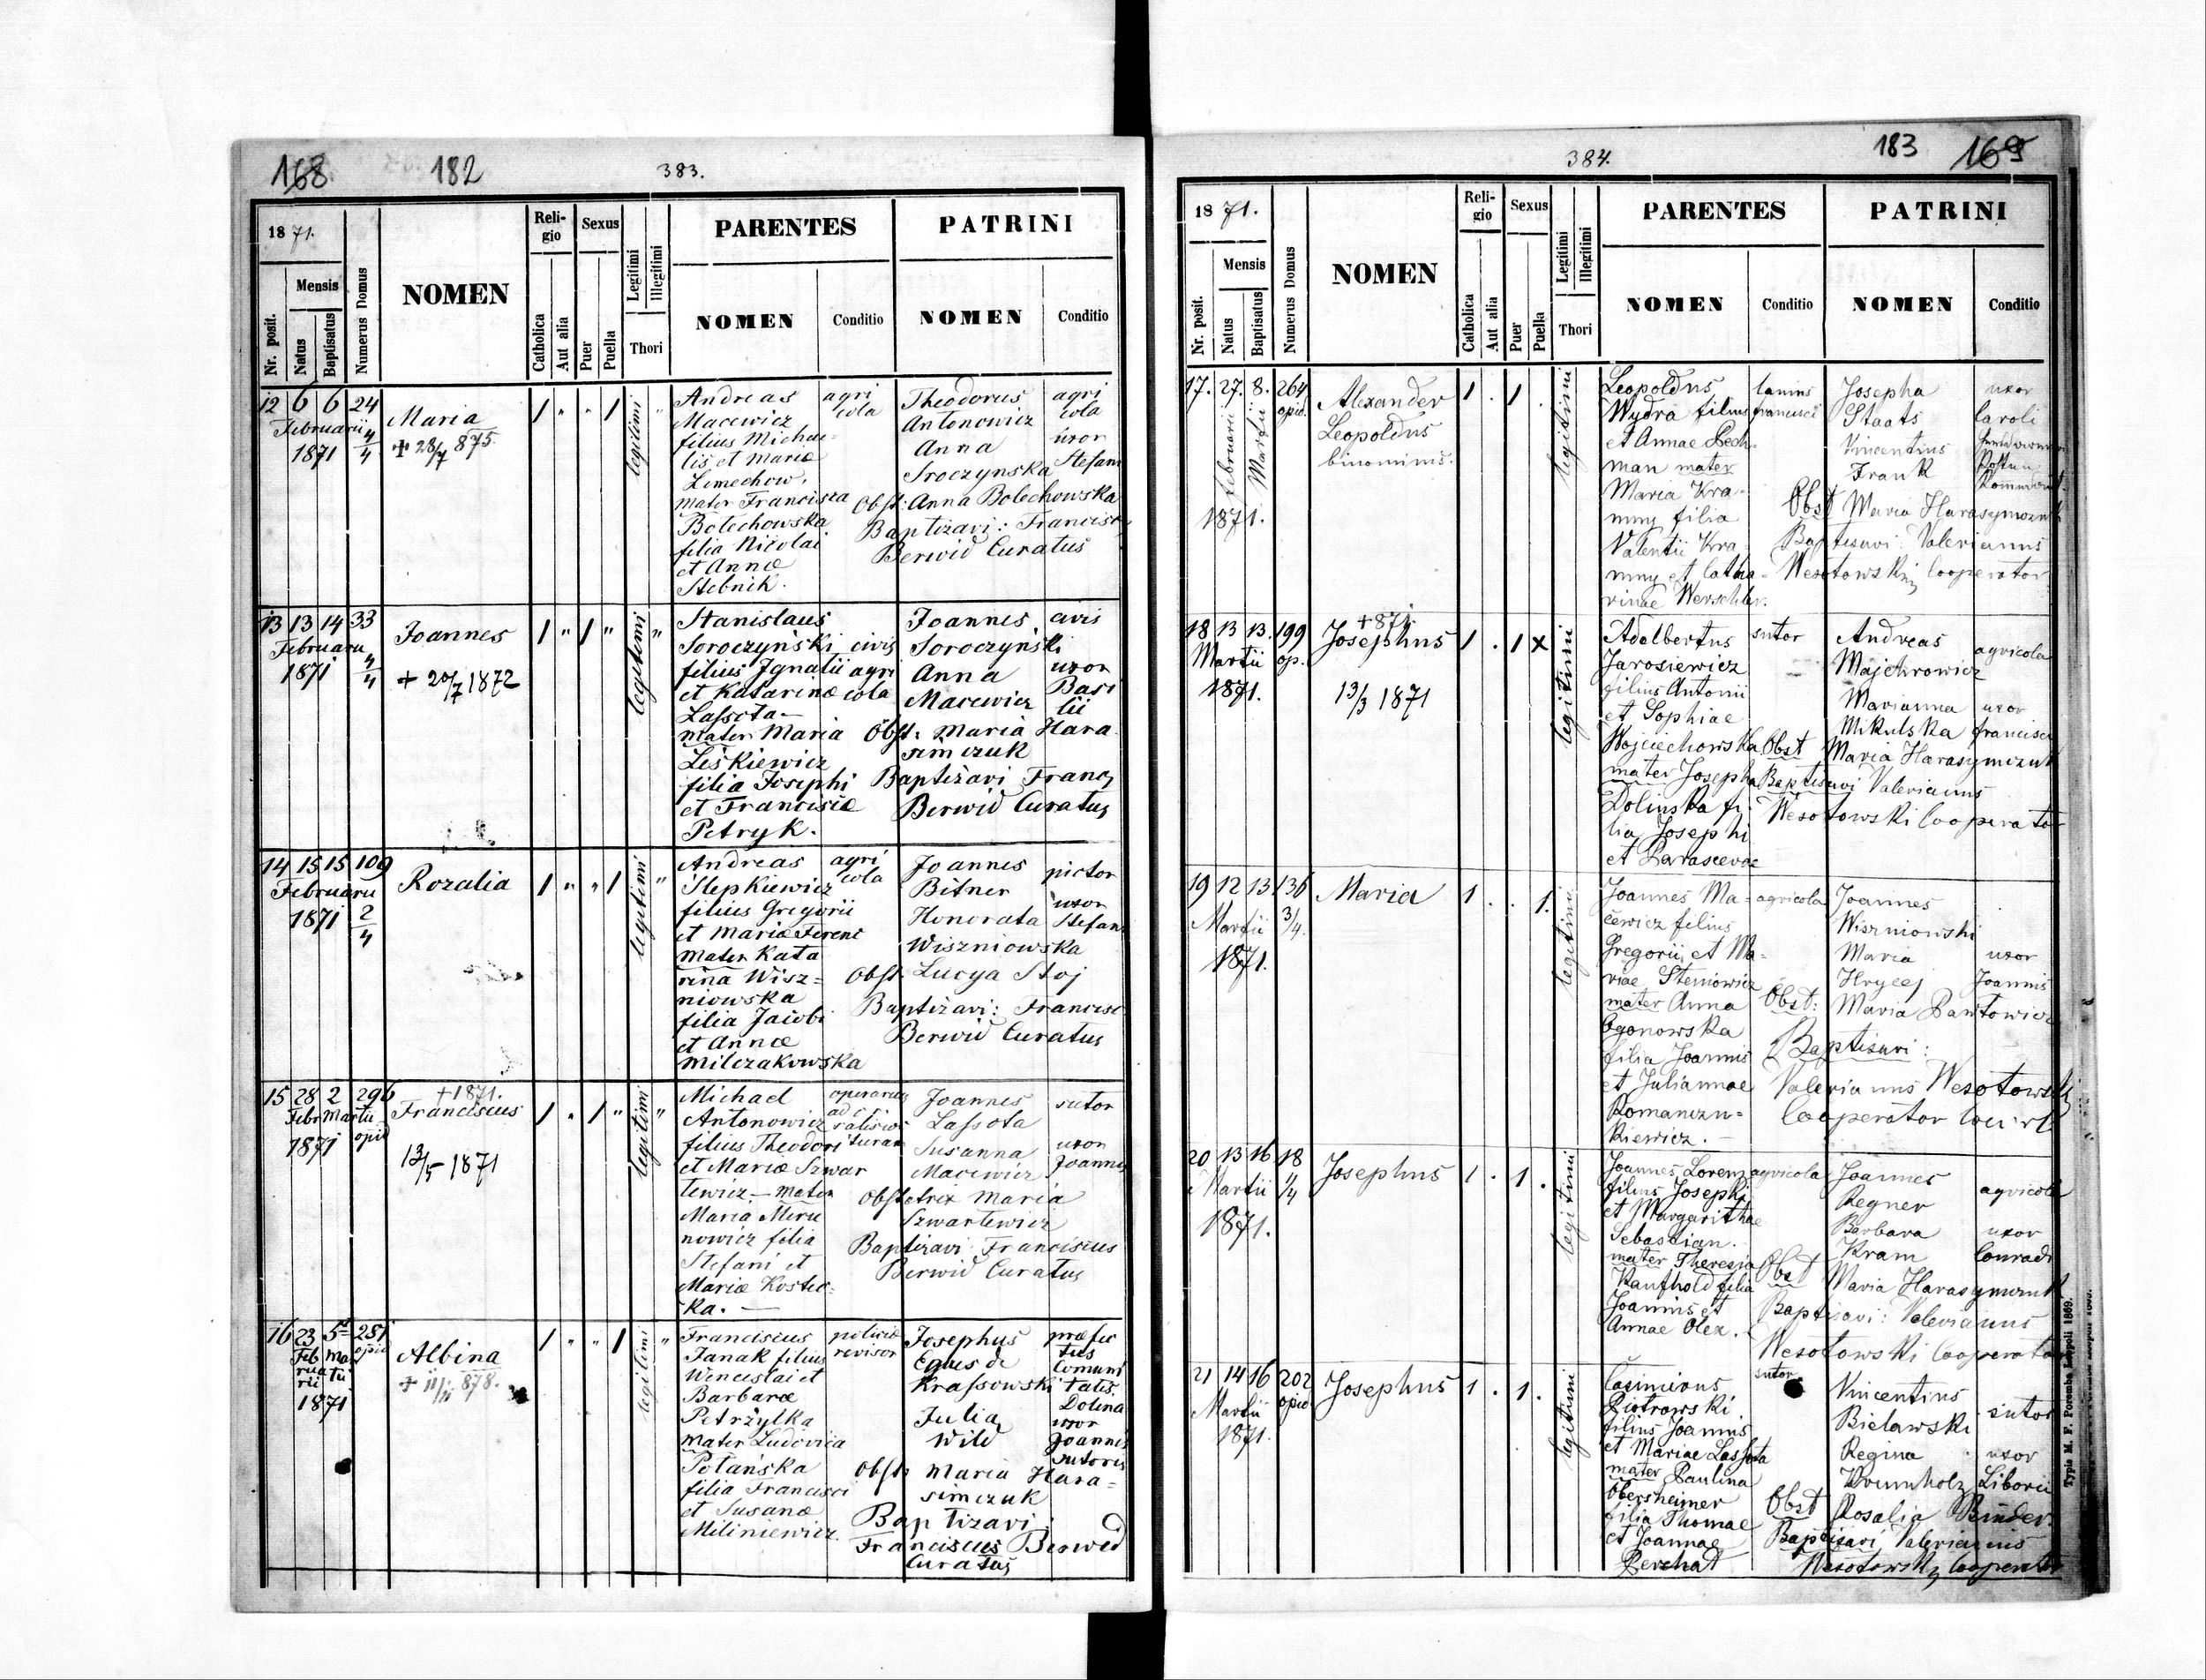 168 182 383.
1871.
Mensis
Nr. posit.
Natus
Baptisatus
Numerus Domus
NOMEN
Religio
Catholica
Aut alia
Sexus
Puer
Puella
Legitimi
Illegitimi
Thori
PARENTES
NOMEN
Conditio
PATRINI
NOMEN
Conditio
12 6 6 24
Februarii 4/4
1871
Maria
+ 28/7 875.
1 " " 1
legitimi "
Andreas agri
Macewicz cola
filius Michae-
lis et Mariæ
Lemechow.
mater Francisca
Bolechowska
filia Nicolai
et Annæ
Stebnik.
Theodorus agri
Antonowicz cola
Anna uxor
Sroczynska Stefani
Obst: Anna Bolechowska
Baptizavi: Francisc
Berwid Curatus
13 13 14 33
Februarii 4/4
1871
Joannes
+ 20/7 1872
1 " 1 "
legitimi "
Stanislaus
Soroczyński civis
filius Ignatii agri
et Katarinæ cola
Lassota -
mater Maria
Leśkiewicz
filia Josephi
et Franciscæ
Petryk.
Joannes civis
Soroczyński
Anna uxor
Macewicz Basi
lii
Obst: Maria Hara
simczuk
Baptizavi Franc
Berwid Curatus
14 15 15 109
Februarii 2/4
1871
Rozalia
1 " " 1
legitimi "
Andreas agri
Slepkiewicz cola
filius Gregorii
et Mariæ Ferenc
mater Kata
rina Wisz=
niowska
filia Jacobi
et Annæ
Milczakowska
Joannes pictor
Bitner
Honorata uxor
Wiszniowska Stefani
Obst Lucya Stoj
Baptizavi: Francisc
Berwid Curatus
15 28 2 296
Febr Martii opid
1871
+ 1871.
Franciscus
13/5 1871
1 " 1 "
legitimi "
Michael operarius
Antonowicz ad
filius Theodori
et Mariæ Szwar
tewicz - mater
Maria Miru
nowicz filia
Stefani et
Mariæ Kostec=
ka. -
Joannes sutor
Lassota
Susanna uxor
Macewicz Joannis
Obstetrex Maria
Szwartewicz
Baptizavi Franciscus
Berwid Curatus
16 23 5 281
Feb Mar opid
rua tii
rii
1871
Albina
+ 11/11 878.
1 " " 1
legitimi "
Franciscus policiæ
Janak filius revisor
Wenceslai et
Barbaræ
Petrżylka
mater Ludovica
Potańska
filia Francisci
et Susanæ
Miliniewicz.
Josephus præfec
Eques de tus
Krassowski Comuni
tatis.
Dolina
Julia uxor
Wild Joannis
sutoris
Obst: Maria Hara=
simczuk
Baptizavi:
Franciscus Berwid
Curatus
384. 183 169
1871.
Mensis
Nr. posit.
Natus
Baptisatus
Numerus Domus
NOMEN
Religio
Catholica
Aut alia
Sexus
Puer
Puella
Legitimi
Illegitimi
Thori
PARENTES
NOMEN
Conditio
PATRINI
NOMEN
Conditio
17. 27. 8. 264
Februarii Martii opid.
1871.
Alexander
Leopoldus
binominis.
1 . 1 .
legitimi
Leopoldus lanius
Wydra filius Francisci
et Annae Lech-
man mater
Maria Kra-
mny filia
Valentii Kra-
mny et Catha-
rinae Werschler.
Josepha uxor
Staats Caroli
Vincentius
Frank
Obst Maria Harasymczuk
Baptisavi: Valerianus
Wesołowski Cooperator
18 13 13. 199
Martii op.
1871.
+ 871.
Josephus
13/3 1871
1 . 1 x
legitimi
Adalbertus sutor
Jarosiewicz
filius Antonii
et Sophiae
Wojciechowska
mater Josepha
Dolinska fi-
lia Josephi
et Parascevae
Andreas agricola
Majchrowicz
Marianna uxor
Mikulska Francisci
Obst Maria Harasymczuk
Baptisavi Valerianus
Wesołowski Cooperator
19 12 13 136
Martii 3/4.
1871.
Maria
1 . . 1.
legitimi
Joannes Ma- agricola
cewicz filius
Gregorii et Ma-
riae Steniowicz
mater Anna
Ogonowska
filia Joannis
et Juliannae
Romanczu-
kiewicz. -
Joannes
Wiszniowski
Maria uxor
Hrycej Joannis
Obst: Maria Pawłowicz
Baptisavi:
Valerianus Wesołowski
Cooperator
20 13 16 18
Martii 1/4
1871.
Josephus
1 . 1 .
legitimi
Joannes Lorenz agricola
filius Josephi
et Margarithae
Sebastian.
mater Theresia
Kaufhold filia
Joannis et
Annae Olex.
Joannes agricola
Regner
Barbara uxor
Kram Conradi
Obst Maria Harasymczuk
Baptisavi: Valerianus
Wesołowski Cooperator
21 14 16 202
Martii opid
1871.
Josephus
1 . 1 .
legitimi
Casimirus sutor
Piotrowski
filius Joannis
et Mariae Lassota
mater Paulina
Obersheimer
filia Thomae
et Joannae
Perzhat
Vincentius sutor
Bielawski
Regina uxor
Krumholz Liborii
Obst Rosalia Binder.
Baptisavi Valerianus
Wesołowski Cooperator
Typis M. F. Poremba Leopoli 1869.